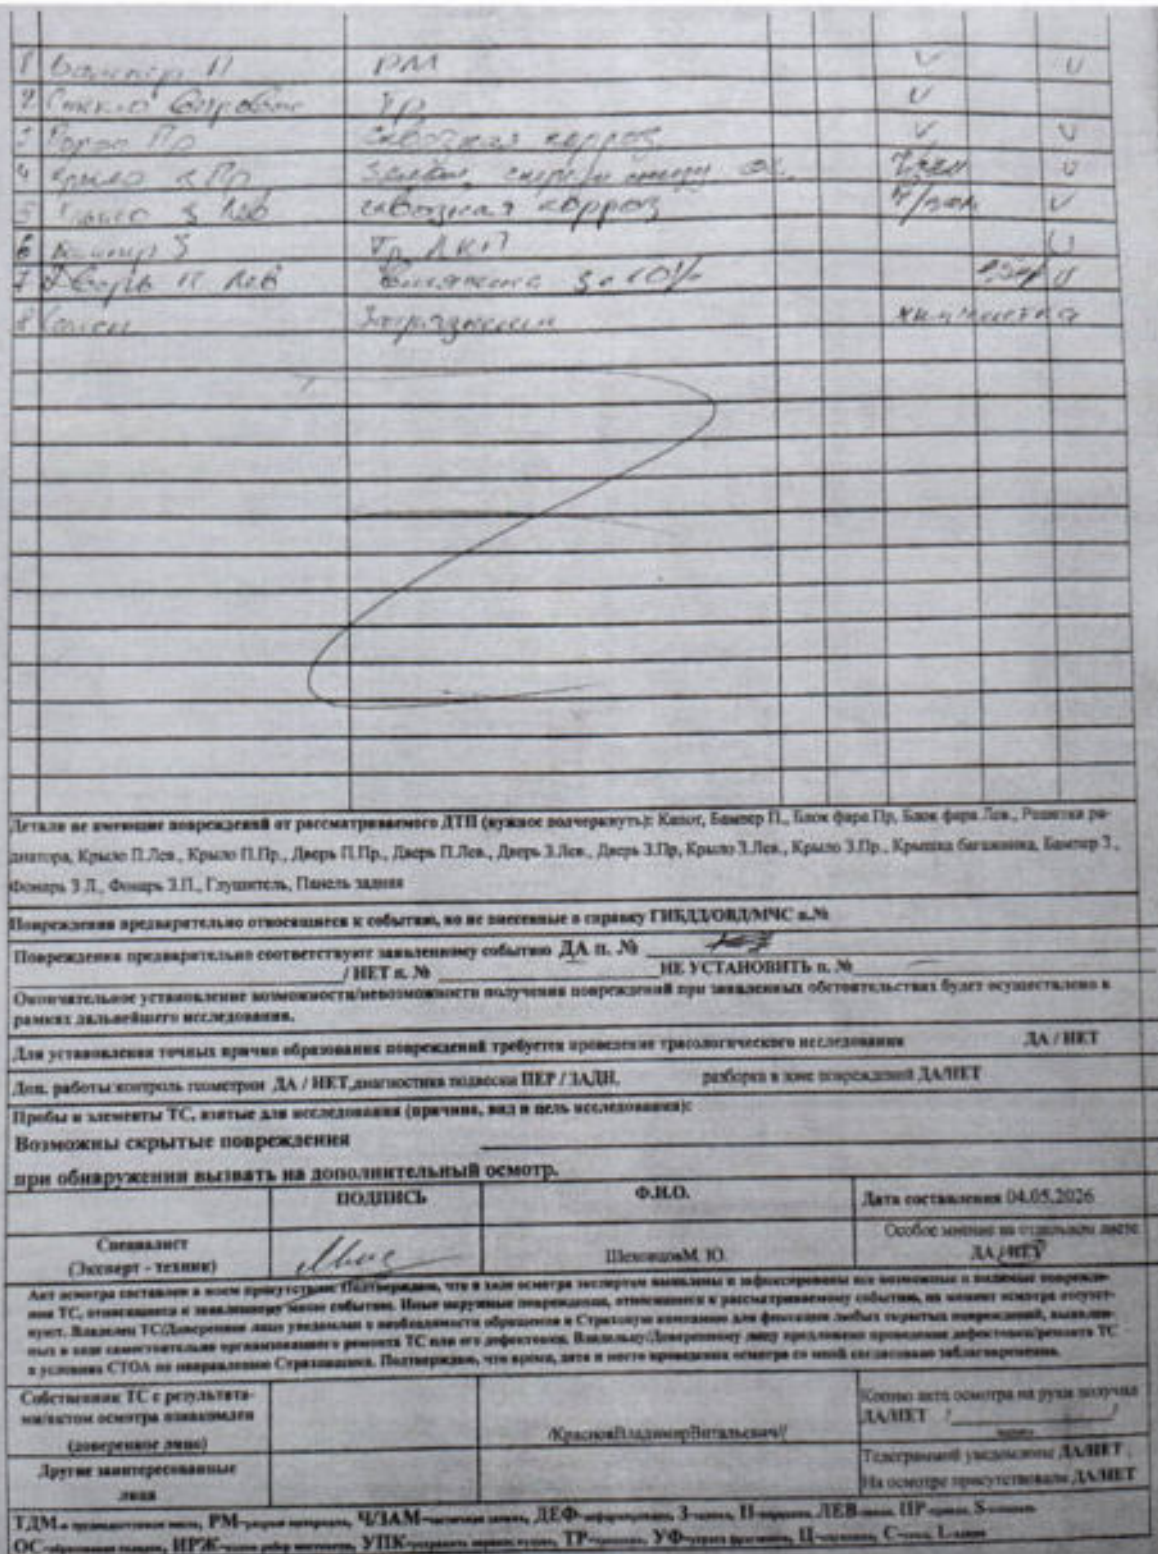 1 Бампер П РМ V V
2 Стекло ветровое Тр. V
3 Порог Пр сквозная корроз. V V
4 Крыло Пр. Ч/зам V
5 Крыло З Лев сквозная корроз Ч/зам V
6 Бампер З Тр. ЛКП V
7 Дверь П Лев З до 10% V
8 Салон Загрязнение химчистка
Детали не имеющие повреждений от рассматриваемого ДТП (нужное подчеркнуть): Капот, Бампер П., Блок фара Пр, Блок фара Лев., Решетка ра-
диатора, Крыло П.Лев., Крыло П.Пр., Дверь П.Пр., Дверь П.Лев., Дверь З.Лев., Дверь З.Пр, Крыло З.Лев., Крыло З.Пр., Крышка багажника, Бампер З.,
Фонарь З.Л., Фонарь З.П., Глушитель, Панель задняя
Повреждения предварительно относящиеся к событию, но не внесенные в справку ГИБДД/ОВД/МЧС п.№
Повреждения предварительно соответствуют заявленному событию ДА п. №
/ НЕТ п. № НЕ УСТАНОВИТЬ п. №
Окончательное установление возможности/невозможности получения повреждений при заявленных обстоятельствах будет осуществлено в
рамках дальнейшего исследования.
Для установления точных причин образования повреждений требуется проведение трасологического исследования ДА / НЕТ
Доп. работы:контроль геометрии ДА / НЕТ,диагностика подвески ПЕР / ЗАДН, разборка в зоне повреждений ДА/НЕТ
Пробы и элементы ТС, взятые для исследования (причина, вид и цель исследования):
Возможны скрытые повреждения
при обнаружении вызвать на дополнительный осмотр.
ПОДПИСЬ Ф.И.О. Дата составления 04.05.2026
Специалист
(Эксперт - техник) ШеховцовМ. Ю. Особое мнение на отдельном листе
ДА / НЕТ
Акт осмотра составлен в моем присутствии. Подтверждаю, что в ходе осмотра экспертом выявлены и зафиксированы все возможные и видимые поврежде-
ния ТС, относящиеся к заявленному мною событию. Иные наружные повреждения, относящиеся к рассматриваемому событию, на момент осмотра отсутст-
вуют. Владелец ТС/Доверенное лицо уведомлен о необходимости обращения в Страховую компанию для фиксации любых скрытых повреждений, выявлен-
ных в ходе самостоятельно организованного ремонта ТС или его дефектовки. Владельцу/Доверенному лицу предложено проведение дефектовки/ремонта ТС
в условиях СТОА по направлению Страховщика. Подтверждаю, что время, дата и место проведения осмотра со мной согласовано заблаговременно.
Собственник ТС с результата-
ми/актом осмотра ознакомлен
(доверенное лицо) /КрасновВладимирВитальевич// Копию акта осмотра на руки получил
ДА/НЕТ / /
Другие заинтересованные
лица Телеграммой уведомлены ДА/НЕТ
На осмотре присутствовали ДА/НЕТ
ТДМ РМ Ч/ЗАМ ДЕФ З П ЛЕВ ПР S
ОС ИРЖ УПК ТР УФ Ц С L